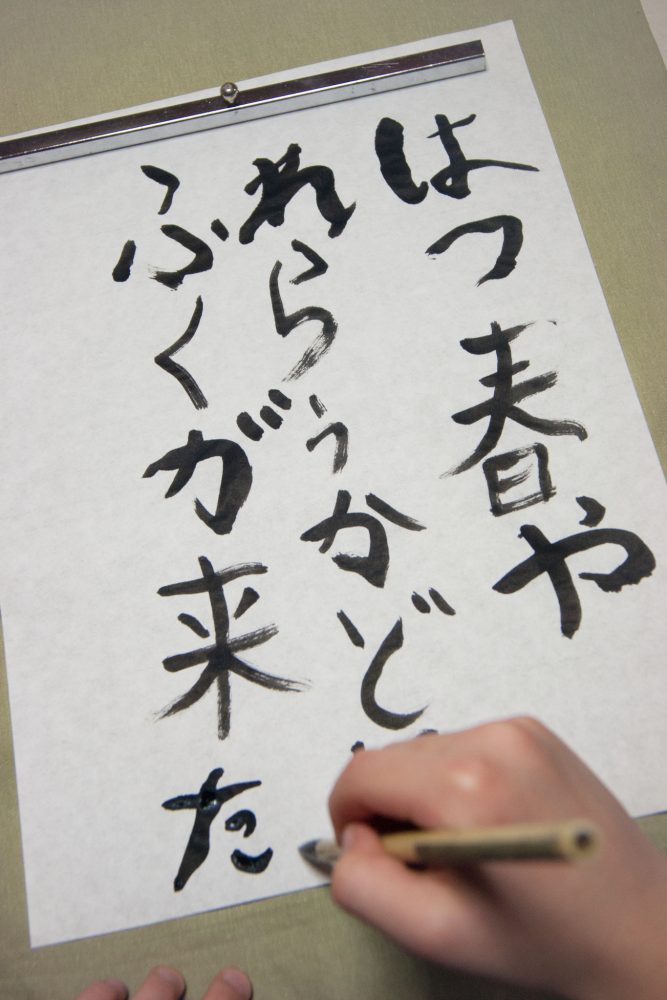 はつ春や
わらうかど
ふくが来た